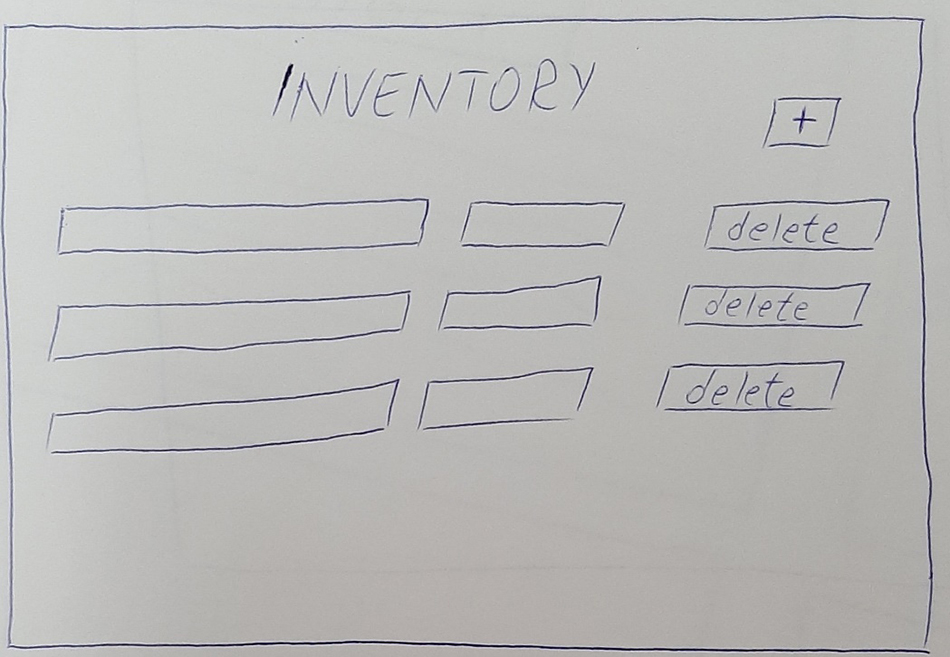 INVENTORY
+
delete
delete
delete